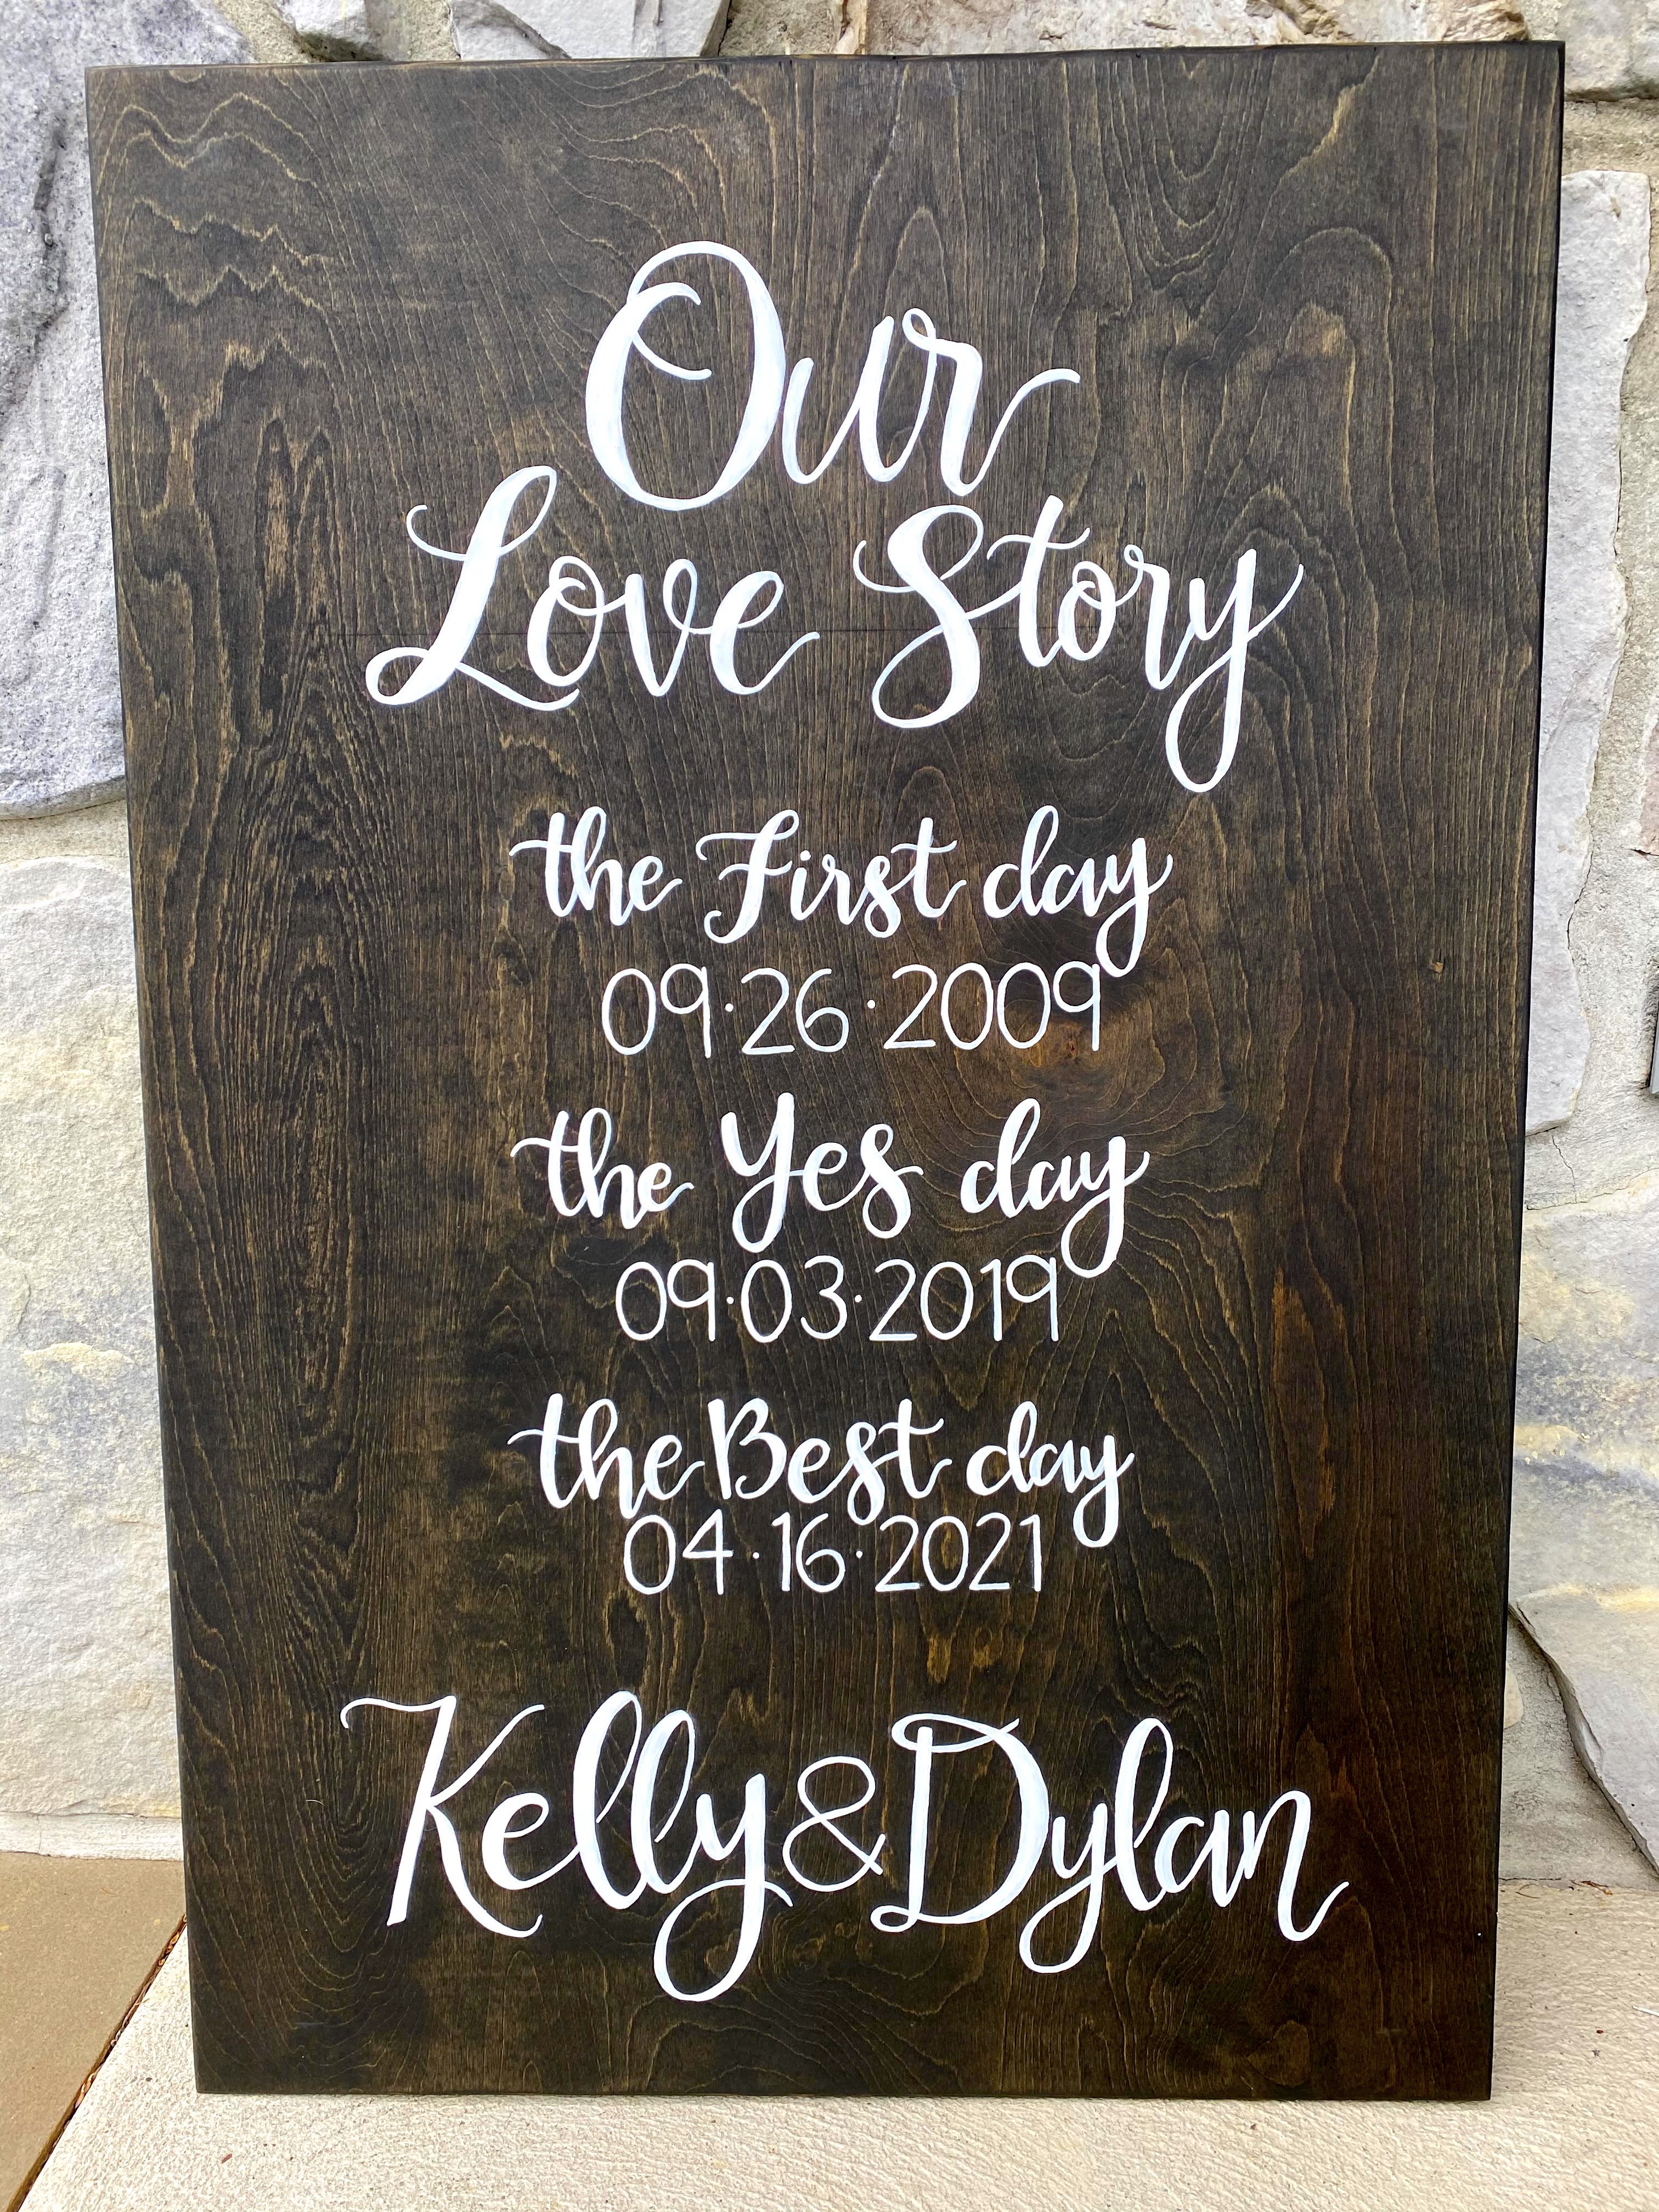 Our
Love Story
the First day
09·26·2009
the Yes day
09·03·2019
the Best day
04·16·2021
Kelly & Dylan